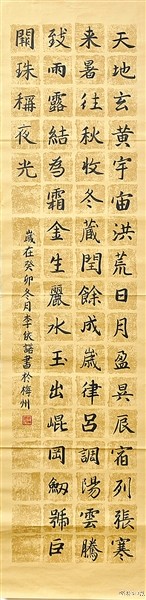 天地玄黃宇宙洪荒日月盈昃辰宿列張寒
来暑往秋收冬藏閏餘成歲律呂調陽雲騰
致雨露結為霜金生麗水玉出崐岡劒號巨
闕珠稱夜光
歲在癸卯冬月李欣諾書於梅州